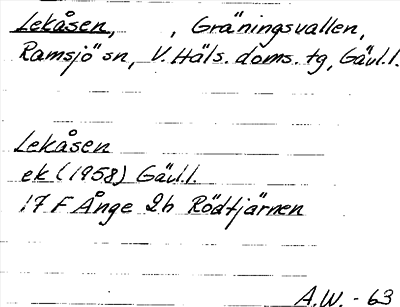 Lekåsen, , Gräningsvallen,
Ramsjö sn, V. Häls. doms. tg, Gävl.l.
Lekåsen
ek (1958) Gävl.l.
17 F Ånge 2h Rödtjärnen
A.W. - 63